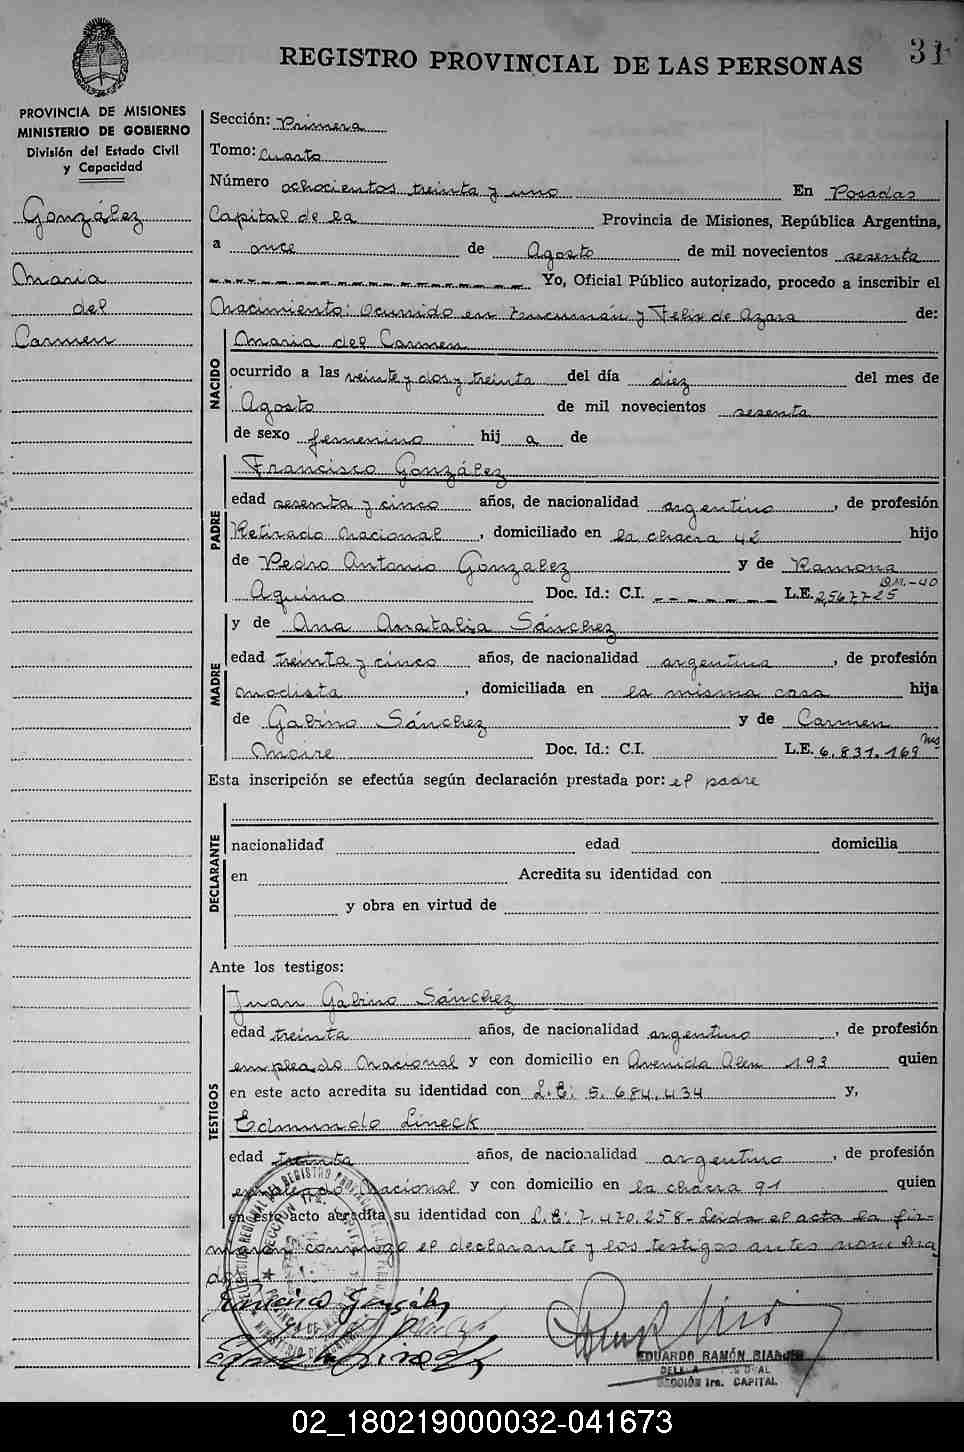 REGISTRO PROVINCIAL DE LAS PERSONAS
31
PROVINCIA DE MISIONES
MINISTERIO DE GOBIERNO
División del Estado Civil
y Capacidad
González
Maria
del
Carmen
Sección: Primera
Tomo: Cuarto
Número ochocientos treinta y uno En Posadas
Capital de la Provincia de Misiones, República Argentina,
a once de Agosto de mil novecientos sesenta
Yo, Oficial Público autorizado, procedo a inscribir el
Nacimiento: Ocurrido en Tucumán y Felix de Azara de:
NACIDO
Maria del Carmen
ocurrido a las veinte y dos y treinta del día diez del mes de
Agosto de mil novecientos sesenta
de sexo femenino hij a de
PADRE
Francisco González
edad sesenta y cinco años, de nacionalidad argentino, de profesión
Retirado Nacional, domiciliado en la chacra 42 hijo
de Pedro Antonio González y de Ramona
D.M.-40
Aquino Doc. Id.: C.I. L.E. 2567725
y de Ana Anatalia Sánchez
MADRE
edad treinta y cinco años, de nacionalidad argentina, de profesión
modista, domiciliada en la misma casa hija
de Gabino Sánchez y de Carmen
Moire Doc. Id.: C.I. L.E. 6.831.169 Ms
Esta inscripción se efectúa según declaración prestada por: el padre
DECLARANTE
nacionalidad edad domicilia
en Acredita su identidad con
y obra en virtud de
Ante los testigos:
TESTIGOS
Juan Gabino Sánchez
edad treinta años, de nacionalidad argentino, de profesión
empleado Nacional y con domicilio en Avenida Alem 193 quien
en este acto acredita su identidad con L.E: 5.684.434 y,
Edmundo Lineck
edad treinta años, de nacionalidad argentino, de profesión
empleado Nacional y con domicilio en la chacra 91 quien
en este acto acredita su identidad con L.E: 7.470.258- Leida el acta la fir-
maron conmigo el declarante y los testigos antes nombra
dos
Francisco González
EDUARDO RAMÓN
SECCIÓN 1ra. CAPITAL
02_180219000032-041673